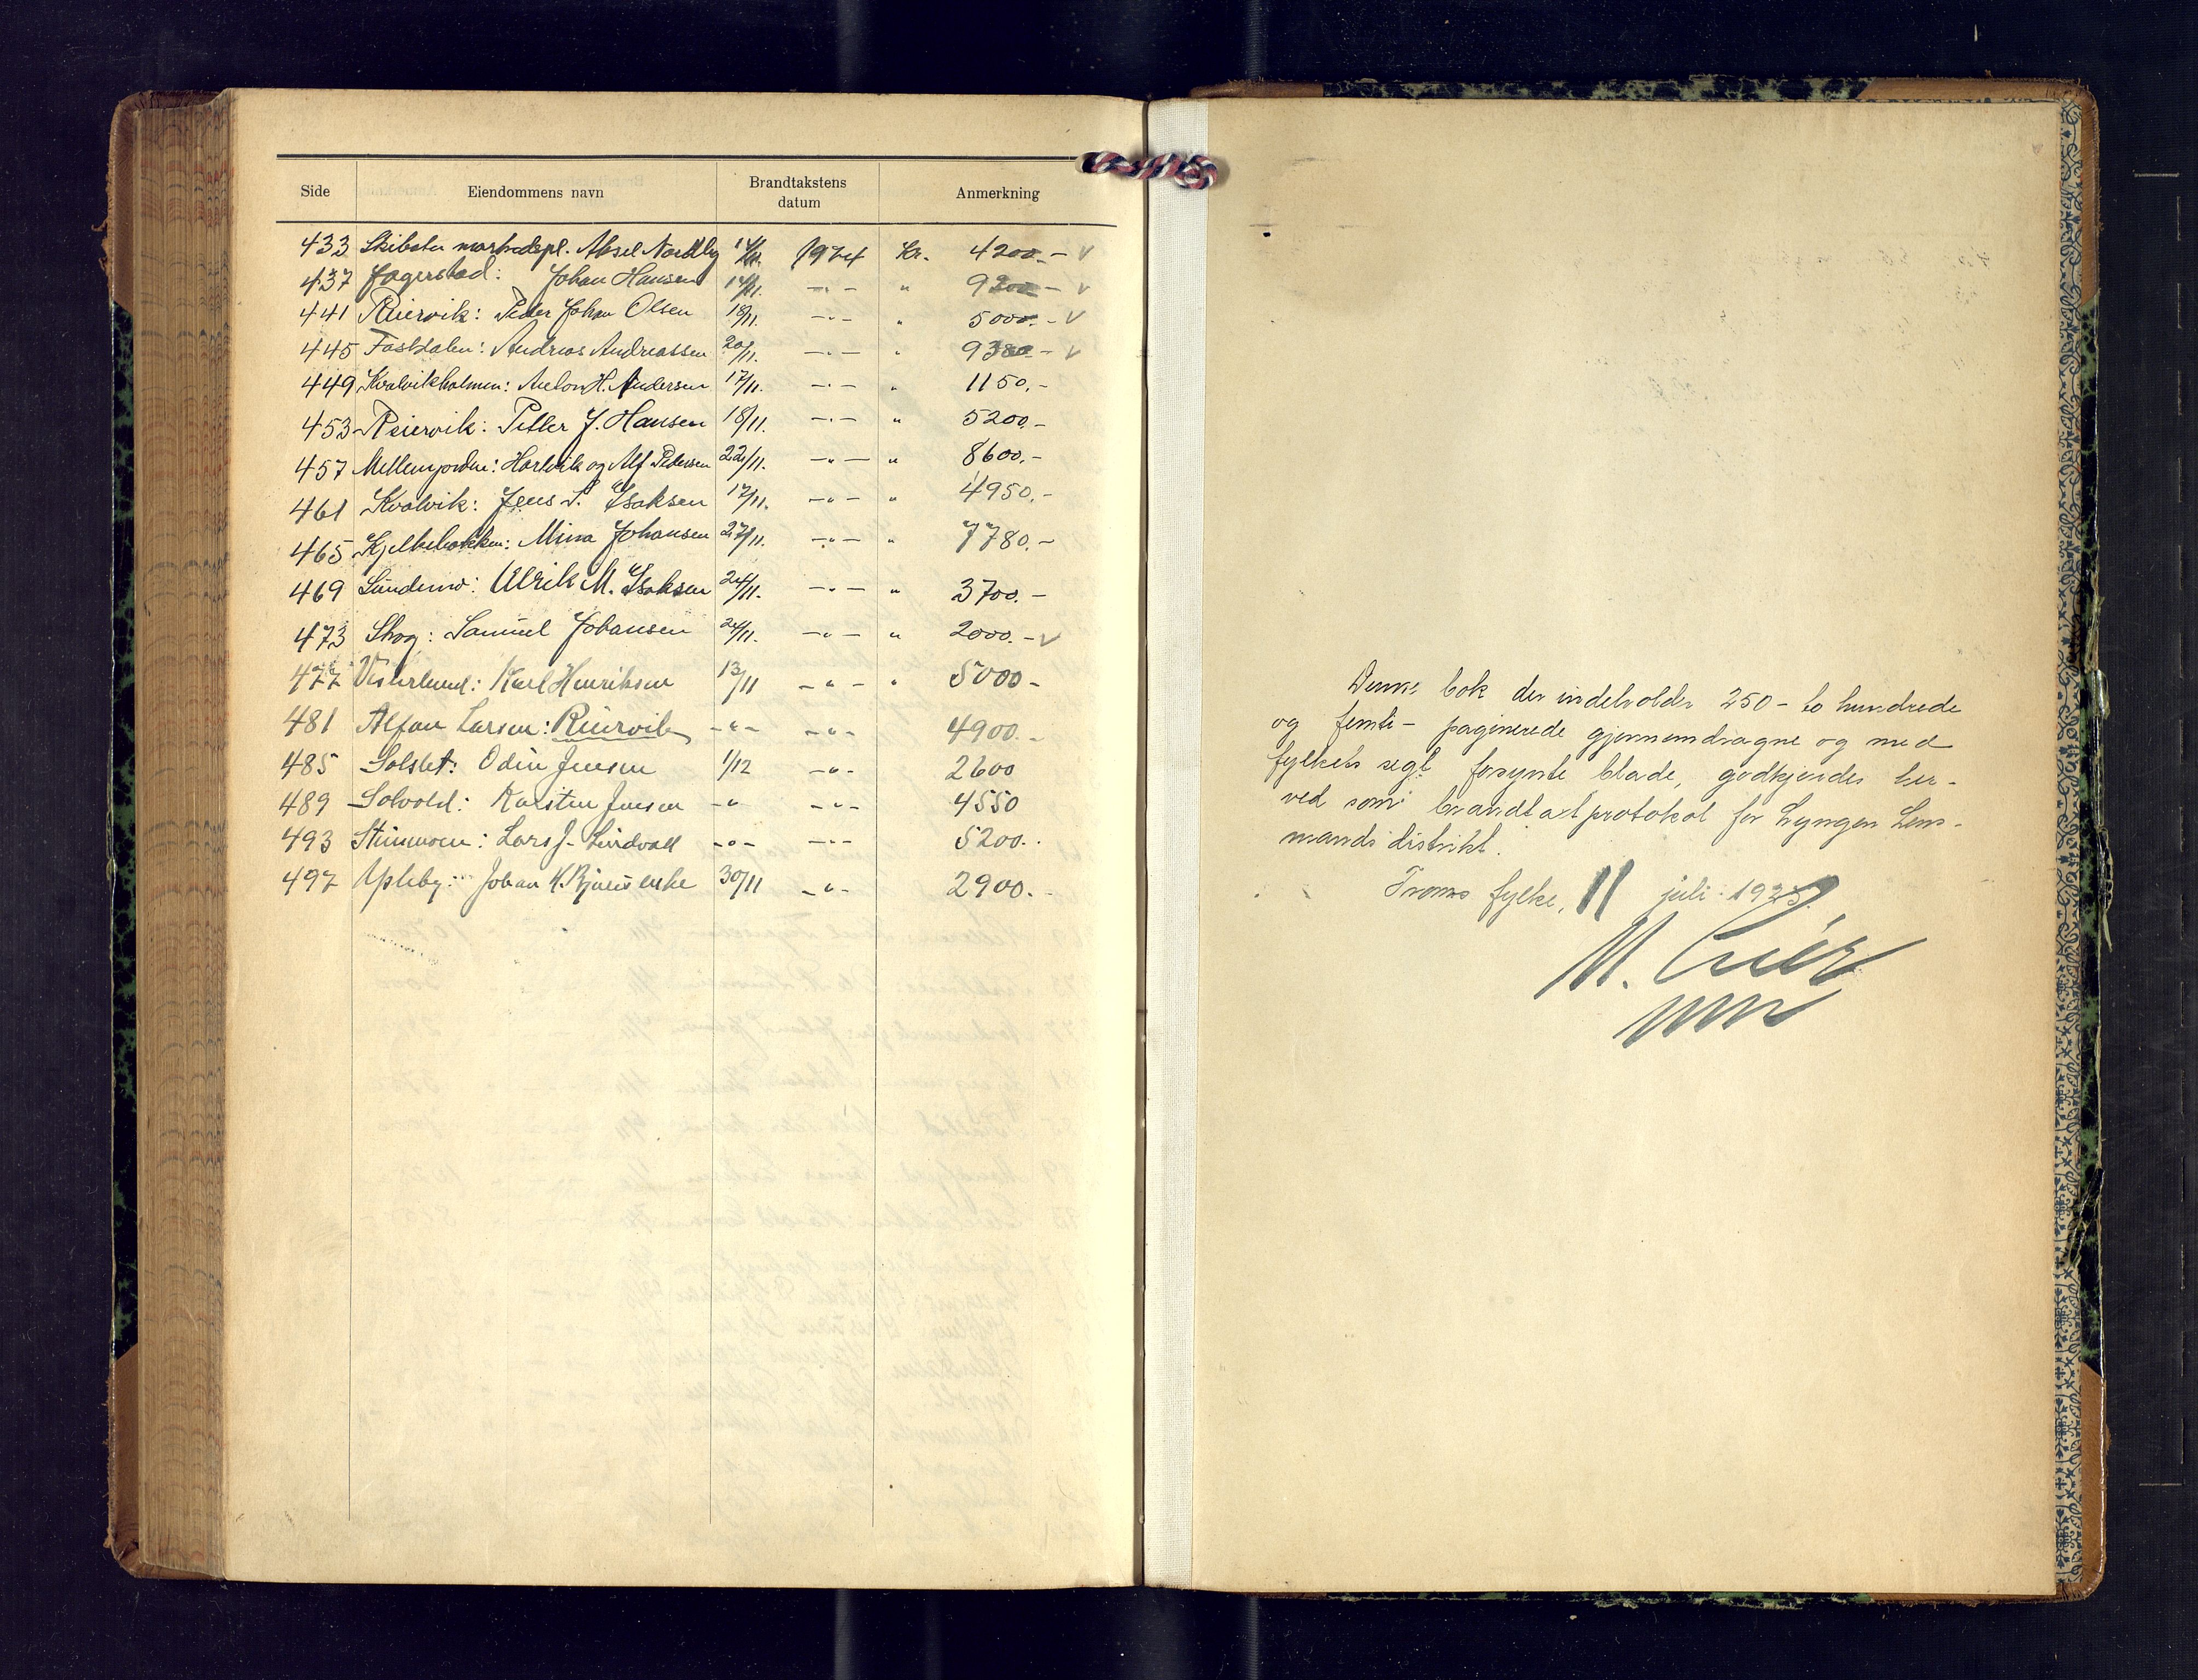 Side Eiendommens navn Brandtakstens datum Anmerkning
433 Skibotn markedspl. Aksel Nordby 14/11. 1924 Kr. 4200.- v
437 Fagerstad: Johan Hansen 14/11. -"- " 9200 - v
441 Reiervik: Peder Johan Olsen 18/11. -"- " 5000.- v
445 Fastdalen: Andreas Andreassen 20/11. -"- " 9380 - v
449 Kvalvikholmen: Anton H. Andersen 17/11. -"- " 1150.-
453 Reiervik: Petter J. Hansen 18/11. -"- " 5200.-
457 Mellemjorden: Hartvik og Alf Pedersen 22/11. -"- " 8600.-
461 Kvalvik: Jens S. Isaksen 17/11. -"- " 4950.-
465 Kjelkebakken: Mina Johansen 27/11. -"- " 7780.-
469 Sundemo: Ulrik M. Isaksen 24/11. -"- " 3700.-
473 Skog: Samuel Johansen 24/11. -"- " 2000.- v
477 Vesterlund: Karl Henriksen 13/11 -"- " 5000-
481 Alfon Larsen: Reiervik -"- -"- 4900.-
485 Solslet: Odin Jensen 1/12 -"- 2600
489 Solvold: Karsten Jensen -"- -"- 4550
493 Steinmoen: Lars J. Lindvall -"- -"- 5200.-
497 Upleby: Johan K. 30/11 -"- 2900.-
Denne bok der indeholder 250 - to hundrede
og femti - paginerede gjennemdragne og med
fylkets segl forsynte blade, godkjendes her-
ved som brandtaxtprotokol for Lyngen Lens-
mandsdistrikt.
Troms fylke, 11 juli 1923.